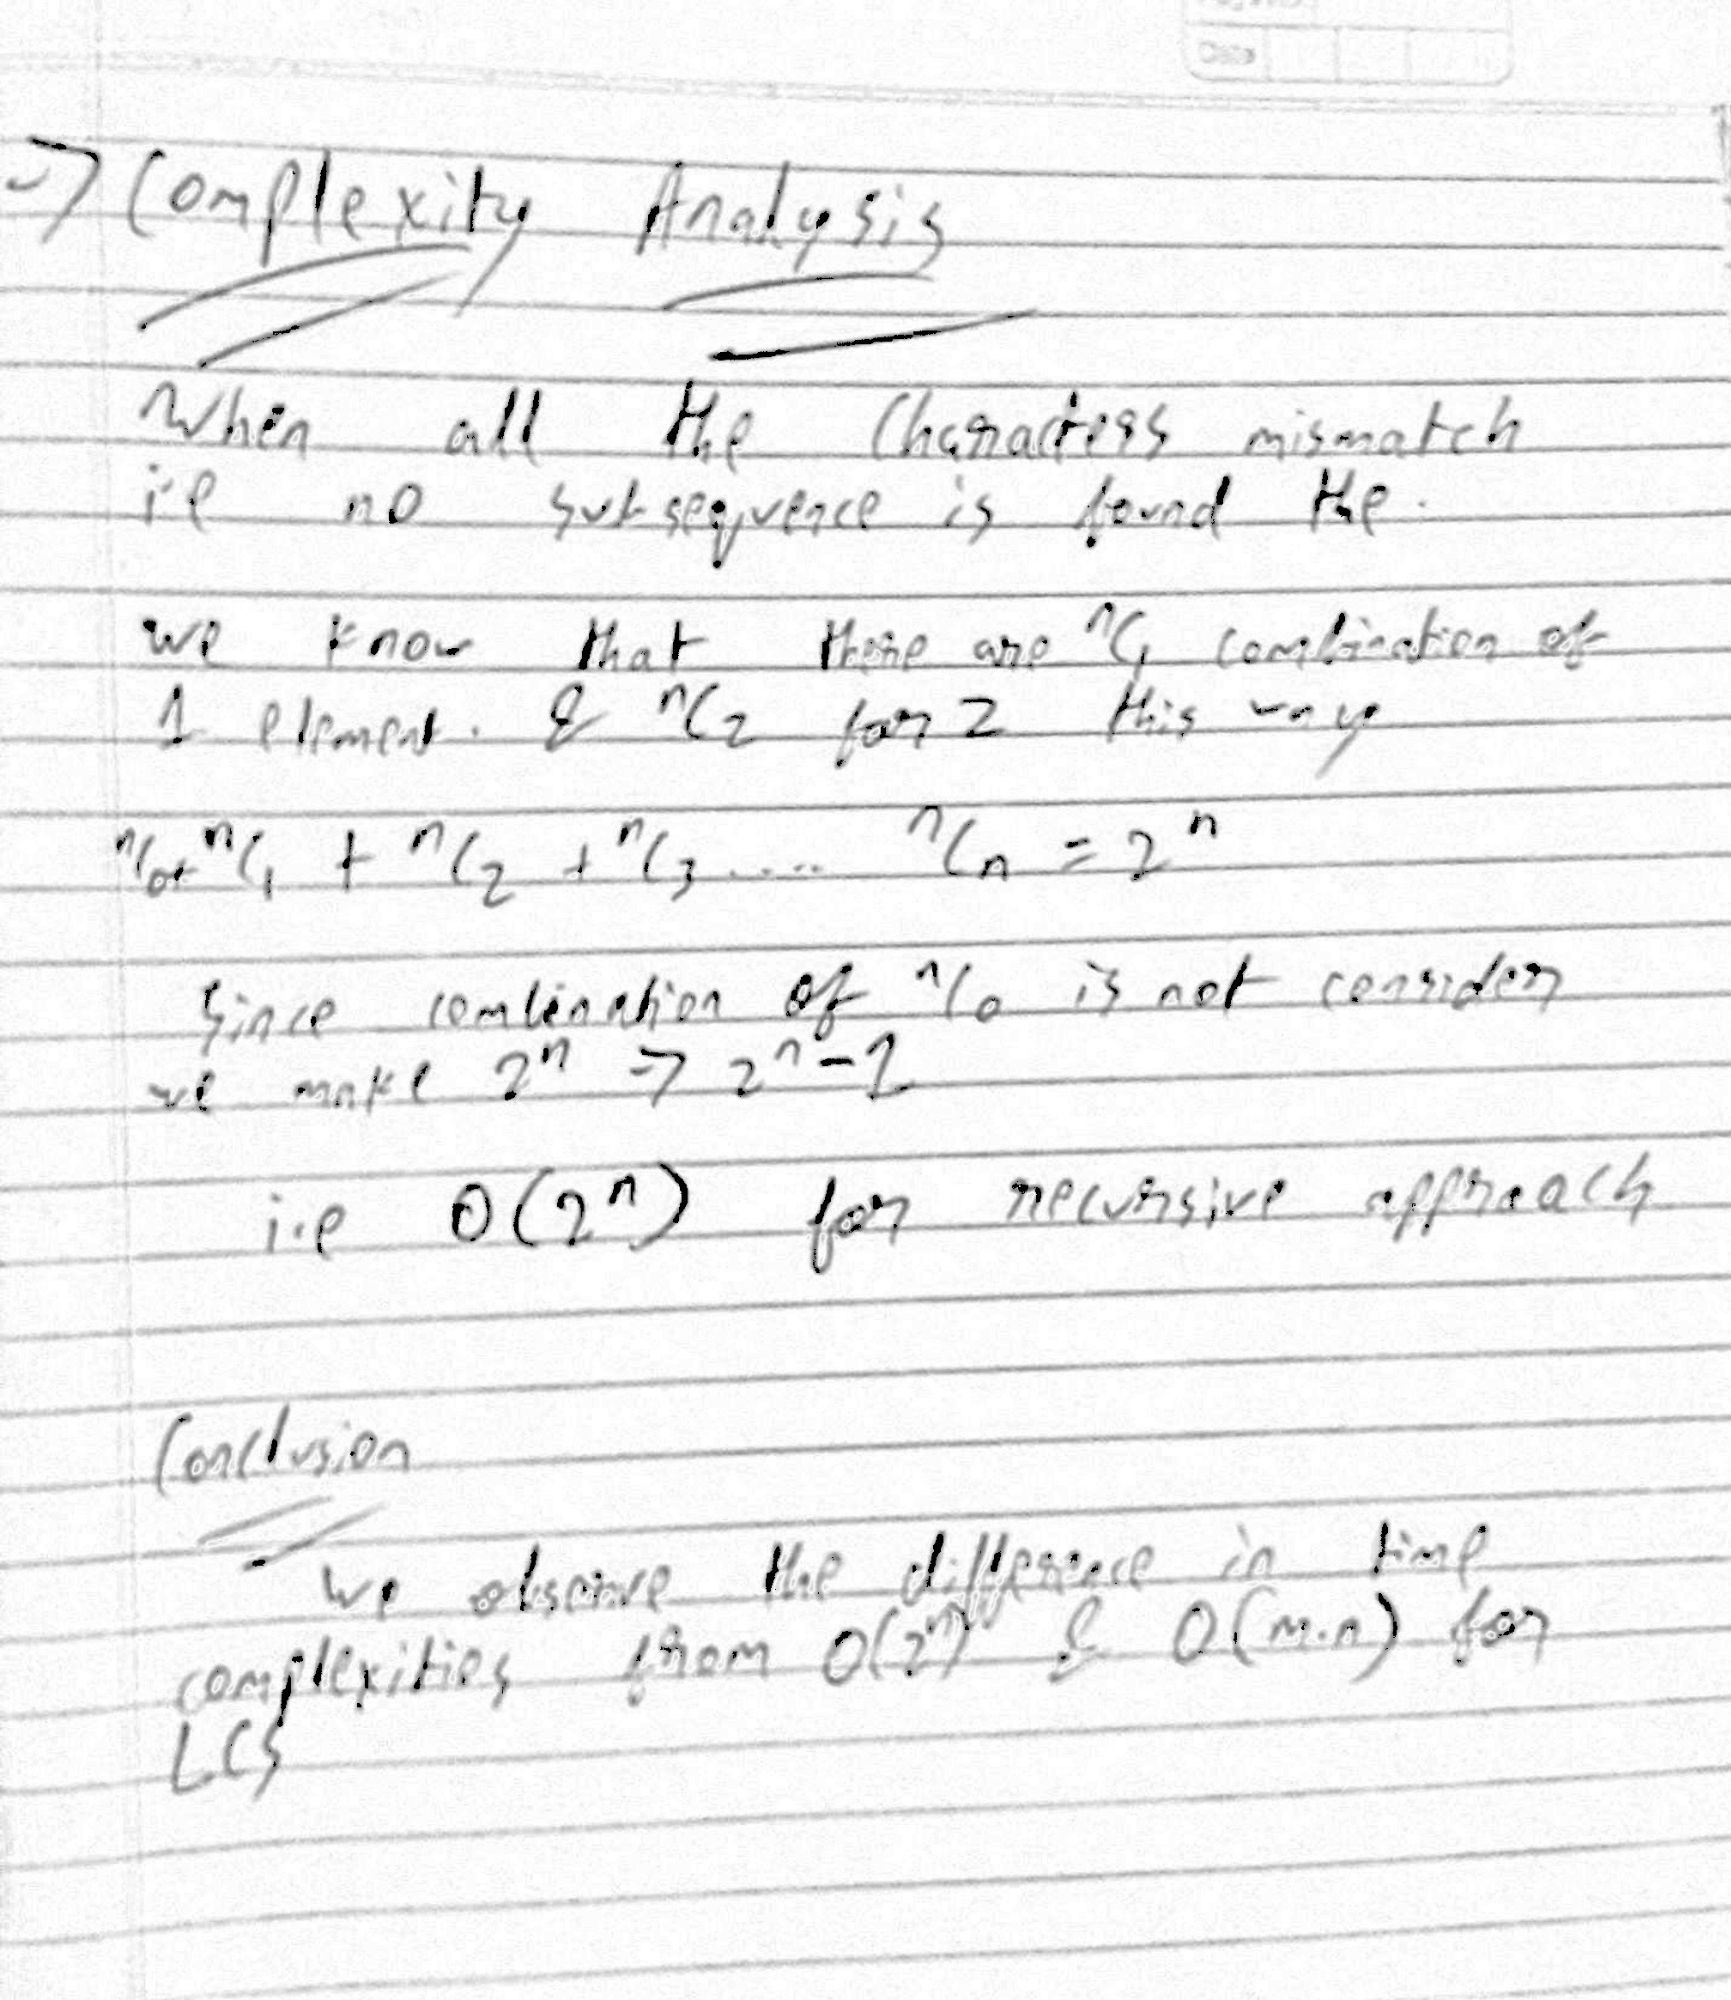 → Complexity Analysis
When all the characters mismatch
i.e no subsequence is found the.
we know that there are ⁿC₁ combination of
1 element. & ⁿC₂ for 2 this way
ⁿC₀+ ⁿC₁ + ⁿC₂ + ⁿC₃ ..... ⁿCₙ = 2ⁿ
Since combination of ⁿC₀ is not consider
we make 2ⁿ → 2ⁿ-1
i.e O(2ⁿ) for recursive approach
Conclusion
We observe the difference in time
complexities from O(2ⁿ) & O(m.n) for
LCS